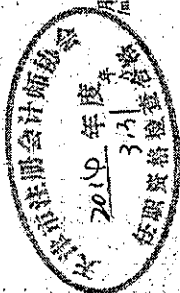 天津市注册会计师协会
2014 年度
3.31
任职资格检查合格
年